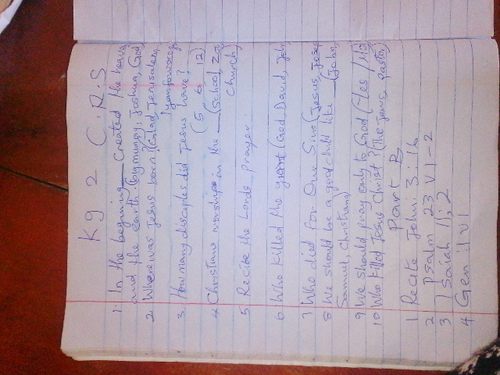 Kg 2 C.R.S
1. In the beginning ___ Created the heaven
and the earth. (by mummy, Joshua, God
2. Where was Jesus born? (Galad, Jerusalem,
3. How many disciples did Jesus have?
(5 6 12)
4 Christians worship in the ___ (School, Zoo,
Church)
5 Recite the Lords prayer.
6 Who killed the giant (God David, John
7 Who died for Our Sins (Jesus, Joseph
8 We should be a good child like ___ (John,
Samuel, Christiana)
9 We should pray only to God (Yes / No
10 Who killed Jesus Christ? (The Jews, Pastor
Part B
1 Recite John: 3: 16
2 Psalm 23 V 1-2
3 Isaiah 11: 2
4 Gen 1 v 1